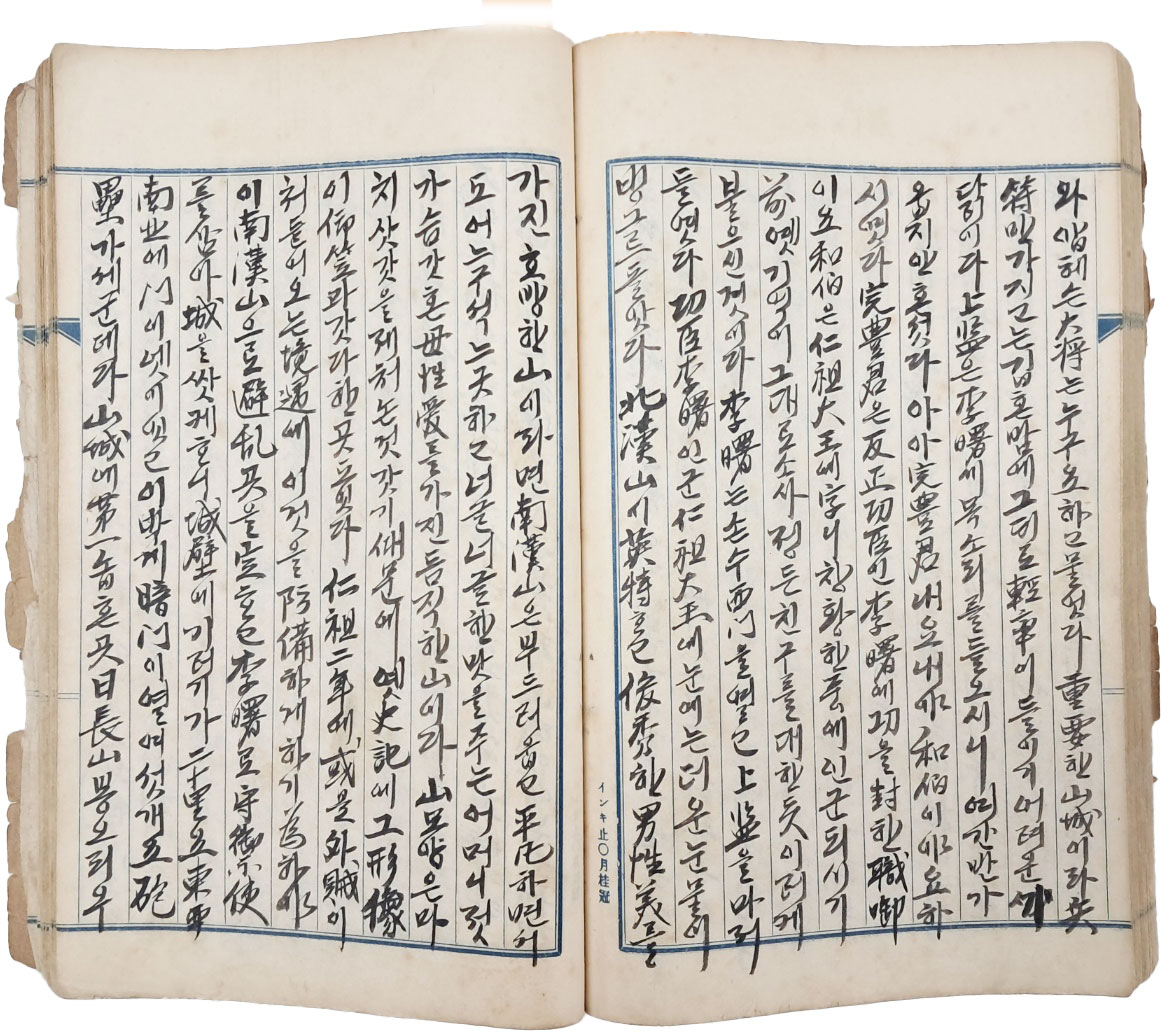 와 암헤는 大將는 누구요 하고 물엇다 重要한 山城이라 共
符만가지고는 깁흔밤에 그러로 輕率이 들이기 어려운 싸
닭이다 上監은 李曙에 목소리를 들으시니 여간 반가
웁지안흔 것다 아아 完豊君 내요 내야 和伯이야 요 하
시엿다 完豊君은 反正功臣인 李曙에 功을 封한 職啣
이요 和伯은 仁祖大王에 字니 창황한 中에 인군되시기
前 옛 기억이 그대로 소사 정든 친구를 대한 듯 이러케
불으신 것이라 李曙는 손수 西門을 열고 上監을 마저
들엿다 功臣 李曙 인군 仁祖大王에 눈에는 더운 눈물이
빙그르 돌앗다 北漢山이 英特하고 俊秀한 男性美를
インキ止〇月桂冠
가진 호방한 山이라면 南漢山은 부드러웁고 平凡하면서
도 어느 구석는 굿하고 너글너글한 맛을 주는 어머니 젓
가슴갓흔 母性愛를 가진 듬직한 山이라 山모양은 마
치 삿갓을 제처논것갓기 때문에 옛 史記에 그 形像
이 仰笠과 갓다 한 곳이다 仁祖二年에 或是 外賊이
처들어오는 境遇에 이것을 防備하게 하기 爲하야
이 南漢山으로 避乱곳을 定하고 李曙로 守御使
를 삼아 城을 쌋케 하니 城壁에 기러기가 二十里요 東西
南北에 门이 넷이 잇고 이 박게 暗门이 열여섯개 五砲
壘가 세군데라 山城에 第一 놉흔 곳 日長山 봉오리 우